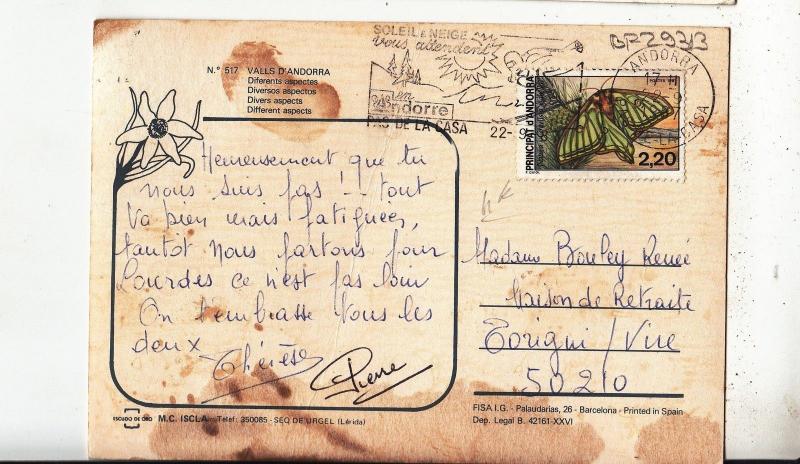 SOLEIL & NEIGE
vous attendent
BF293/3
N.° 517 VALLS D'ANDORRA
Diferents aspectes
Diversos aspectos
Divers aspects
Different aspects
andorre
PAS DE LA CASA
22-
ANDORRA
LA CASA
PRINCIPAT D'ANDORRA
2,20
Heureusement que tu
nous suis pas ! tout
va bien mais fatiguées,
tantôt nous partons pour
Lourdes ce n'est pas loin
On t'embrasse tous les
deux
Thérèse
Pierre
Madame Bouley Renée
Maison de Retraite
Torigni / Vire
50210
ESCUDO DE ORO M.C. ISCLA - Telef: 350085 - SEO DE URGEL (Lérida)
FISA I.G. - Palaudarias, 26 - Barcelona - Printed in Spain
Dep. Legal B. 42161-XXVI